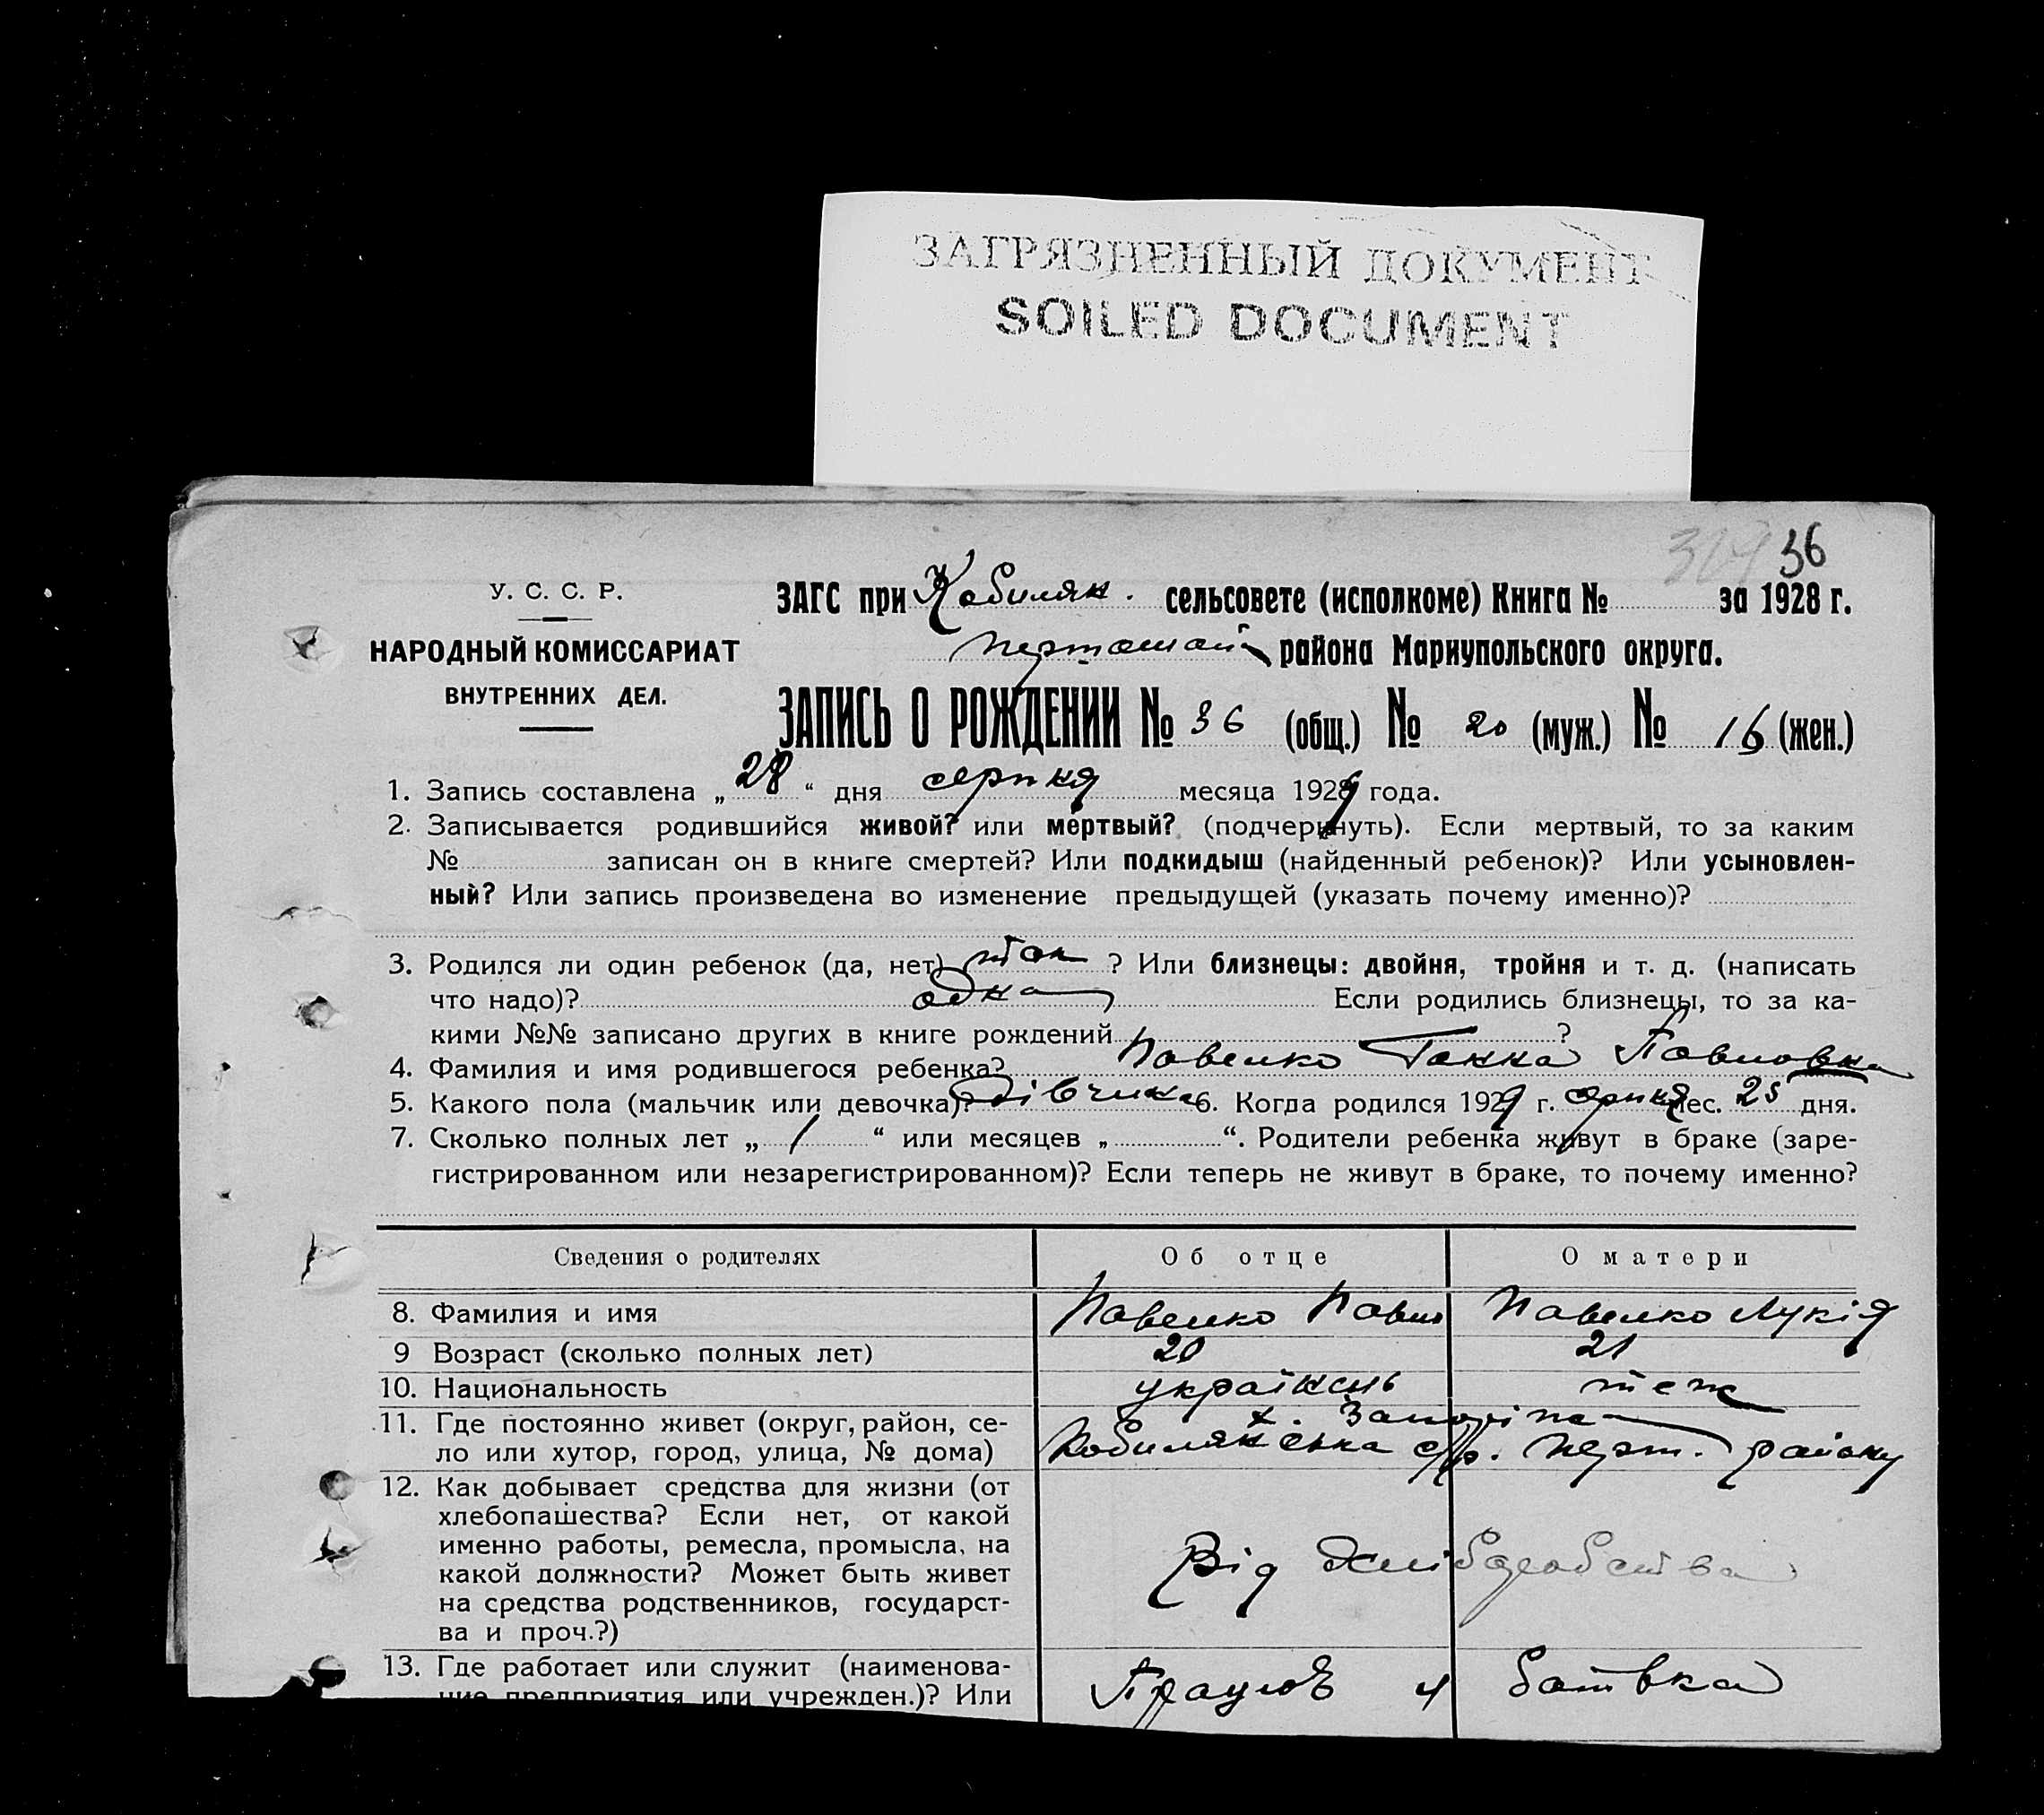 ЗАГРЯЗНЕННЫЙ ДОКУМЕНТ
SOILED DOCUMENT
36
У. С. С. Р.
НАРОДНЫЙ КОМИССАРИАТ
ВНУТРЕННИХ ДЕЛ.
ЗАГС при Кобиляк. сельсовете (исполкоме) Книга № за 1928 г.
района Мариупольского округа.
ЗАПИСЬ О РОЖДЕНИИ № 36 (общ.) № 20 (муж.) № 16 (жен.)
1. Запись составлена „ 28 “ дня серпня месяца 1929 года.
2. Записывается родившийся живой? или мертвый? (подчеркнуть). Если мертвый, то за каким
№ записан он в книге смертей? Или подкидыш (найденный ребенок)? Или усыновлен-
ный? Или запись произведена во изменение предыдущей (указать почему именно)?
3. Родился ли один ребенок (да, нет) так ? Или близнецы: двойня, тройня и т. д. (написать
что надо)? одна Если родились близнецы, то за ка-
кими №№ записано других в книге рождений ?
4. Фамилия и имя родившегося ребенка? Павелко Ганна Павловна
5. Какого пола (мальчик или девочка)? дівчина 6. Когда родился 1929 г. серпня мес. 25 дня.
7. Сколько полных лет „ 1 “ или месяцев „ “. Родители ребенка живут в браке (заре-
гистрированном или незарегистрированном)? Если теперь не живут в браке, то почему именно?
Сведения о родителях Об отце О матери
8. Фамилия и имя Павелко Павло Павелко Лукія
9 Возраст (сколько полных лет) 20 21
10. Национальность українець теж
11. Где постоянно живет (округ, район, се- х.
ло или хутор, город, улица, № дома) Кобилякська с/р. перт. району
12. Как добывает средства для жизни (от
хлебопашества? Если нет, от какой
именно работы, ремесла, промысла, на
какой должности? Может быть живет Від хліборобства
на средства родственников, государст-
ва и проч.?)
13. Где работает или служит (наименова- Працює у батька
ние предприятия или учрежден.)? Или